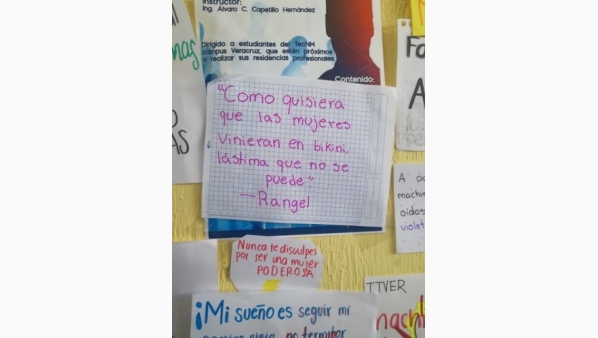 Instructor:
Ing. Álvaro C. Capetillo Hernández
Dirigido a estudiantes del TecNM
campus Veracruz, que estén próximos
a realizar sus residencias profesionales.
Contenido:
"Como quisiera
que las mujeres
Vinieran en bikini,
lástima que no se
puede"
— Rangel
Nunca te disculpes
por ser una mujer
PODEROSA
¡Mi sueño es seguir mi
no terminar
TTVER
A
oidos
violet